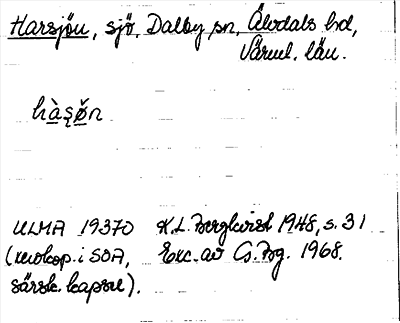 Harsjön, sjö, Dalby sn, Älvdals hd,
Värml. län.
hàsǿn
ULMA 19370 K.L. Bergkvist 1948, s. 31
(mikrokop. i SOA, Exc. av G. Bg. 1968.
särsk. kapsel).